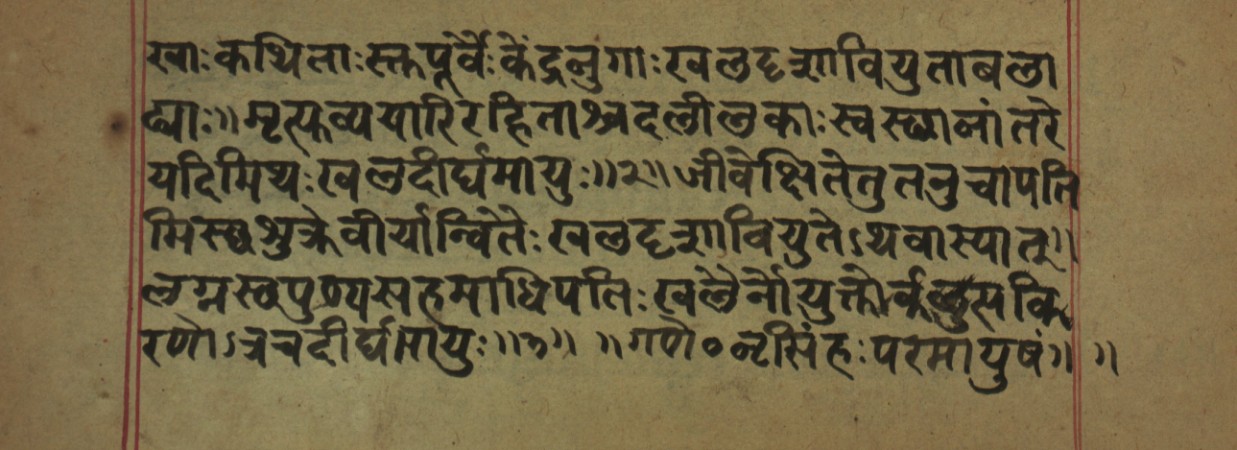 खाः कथिताः स्तपूर्वैः केंद्रनुगाः खलदृशावियुताबला
ढ्याः॥ मृत्यूव्ययारिरहिताश्चदलीलकाः स्वस्छानांतरे
यदिमिथः खलदीर्घमायुः॥२॥ जीवेक्षितेतुतनुचापति
मिस्छशुक्रेवीर्यान्वितेः खलदृशावियुतेऽथवास्यात्॥
लग्नस्छपुण्यसहमाधिपतिः खलैर्नोयुक्तो
रणोऽत्रचदीर्घमायुः॥३॥ ॥गणे०नृसिंहः परमायुषं॥ ॥